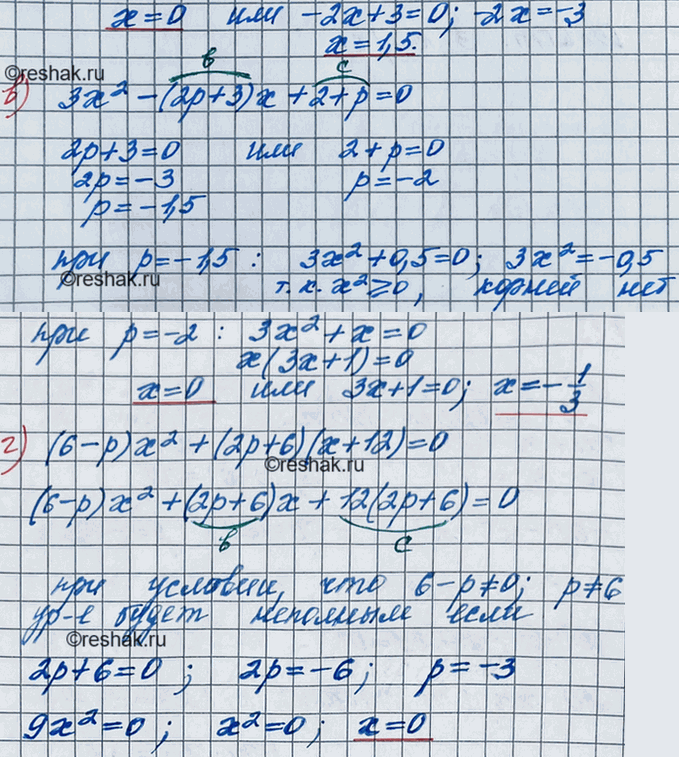 x=0 или -2x+3=0; -2x=-3
x=1,5.
©reshak.ru
в c
в) 3x² -(2p+3)x + 2+p =0
2p+3=0 или 2+p=0
2p=-3 p=-2
p=-1,5
при p=-1,5 : 3x²+0,5=0; 3x²=-0,5
©reshak.ru т.к. x²≥0, корней нет
при p=-2 : 3x²+x=0
x(3x+1)=0
x=0 или 3x+1=0; x=-1/3
г) (6-p)x² +(2p+6)(x+12)=0
©reshak.ru
(6-p)x² +(2p+6)x + 12(2p+6)=0
в c
при условии, что 6-p≠0; p≠6
ур-е будет неполным если
©reshak.ru
2p+6=0 ; 2p=-6; p=-3
9x²=0; x²=0; x=0